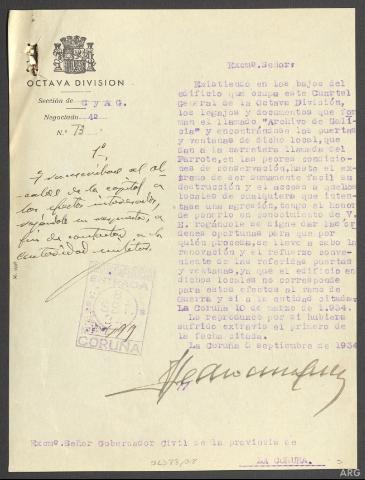 OCTAVA DIVISION
Sección de CyAG.
Negociado 4º
N.º 73
Excmº. Señor:
Existiendo en los bajos del
edificio que ocupa este Cuartel
General de la Octava División,
los legajos y documentos que for
man el llamado "Archivo de Gali
cia" y encontrándose las puertas
y ventanas de dicho local, que
dan a la carretera llamada del
Parrote, en las peores condicio
nes de conservación, hasta el ex
tremo de ser sumamente fácil su
destrucción y el acceso a quellos
locales de cualquiera que inten
tase una agresión, tengo el honor
de ponerlo en conocimiento de V.
E. rogándole se digne dar las or
denes oportunas para que por
quién proceda, se lleve a cabo la
renovación y el refuerzo conve-
niente de las referidas puertas
y ventanas, ya que el edificio en
dichos locales no corresponde
para estos efectos al ramo de
Guerra y si a la entidad citada.
La Coruña 10 de marzo de 1.934.
La reproduzco por si hubiera
sufrido extravio el primero de
la fecha citada.
La Coruña 5 septiembre de 1934
1º
Transcríbase al al
calde de la capital a
los efectos interesados,
a
fin de contestar a la
autoridad militar
ENTRADA
CORUÑA
Excmº. Señor Gobernador Civil de la provincia de
LA CORUÑA.
ARG